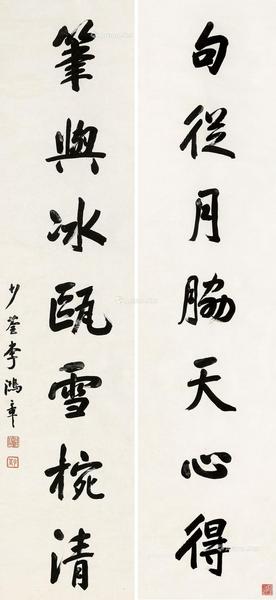 句從月脇天心得
筆與冰甌雪椀清
少荃李鴻章